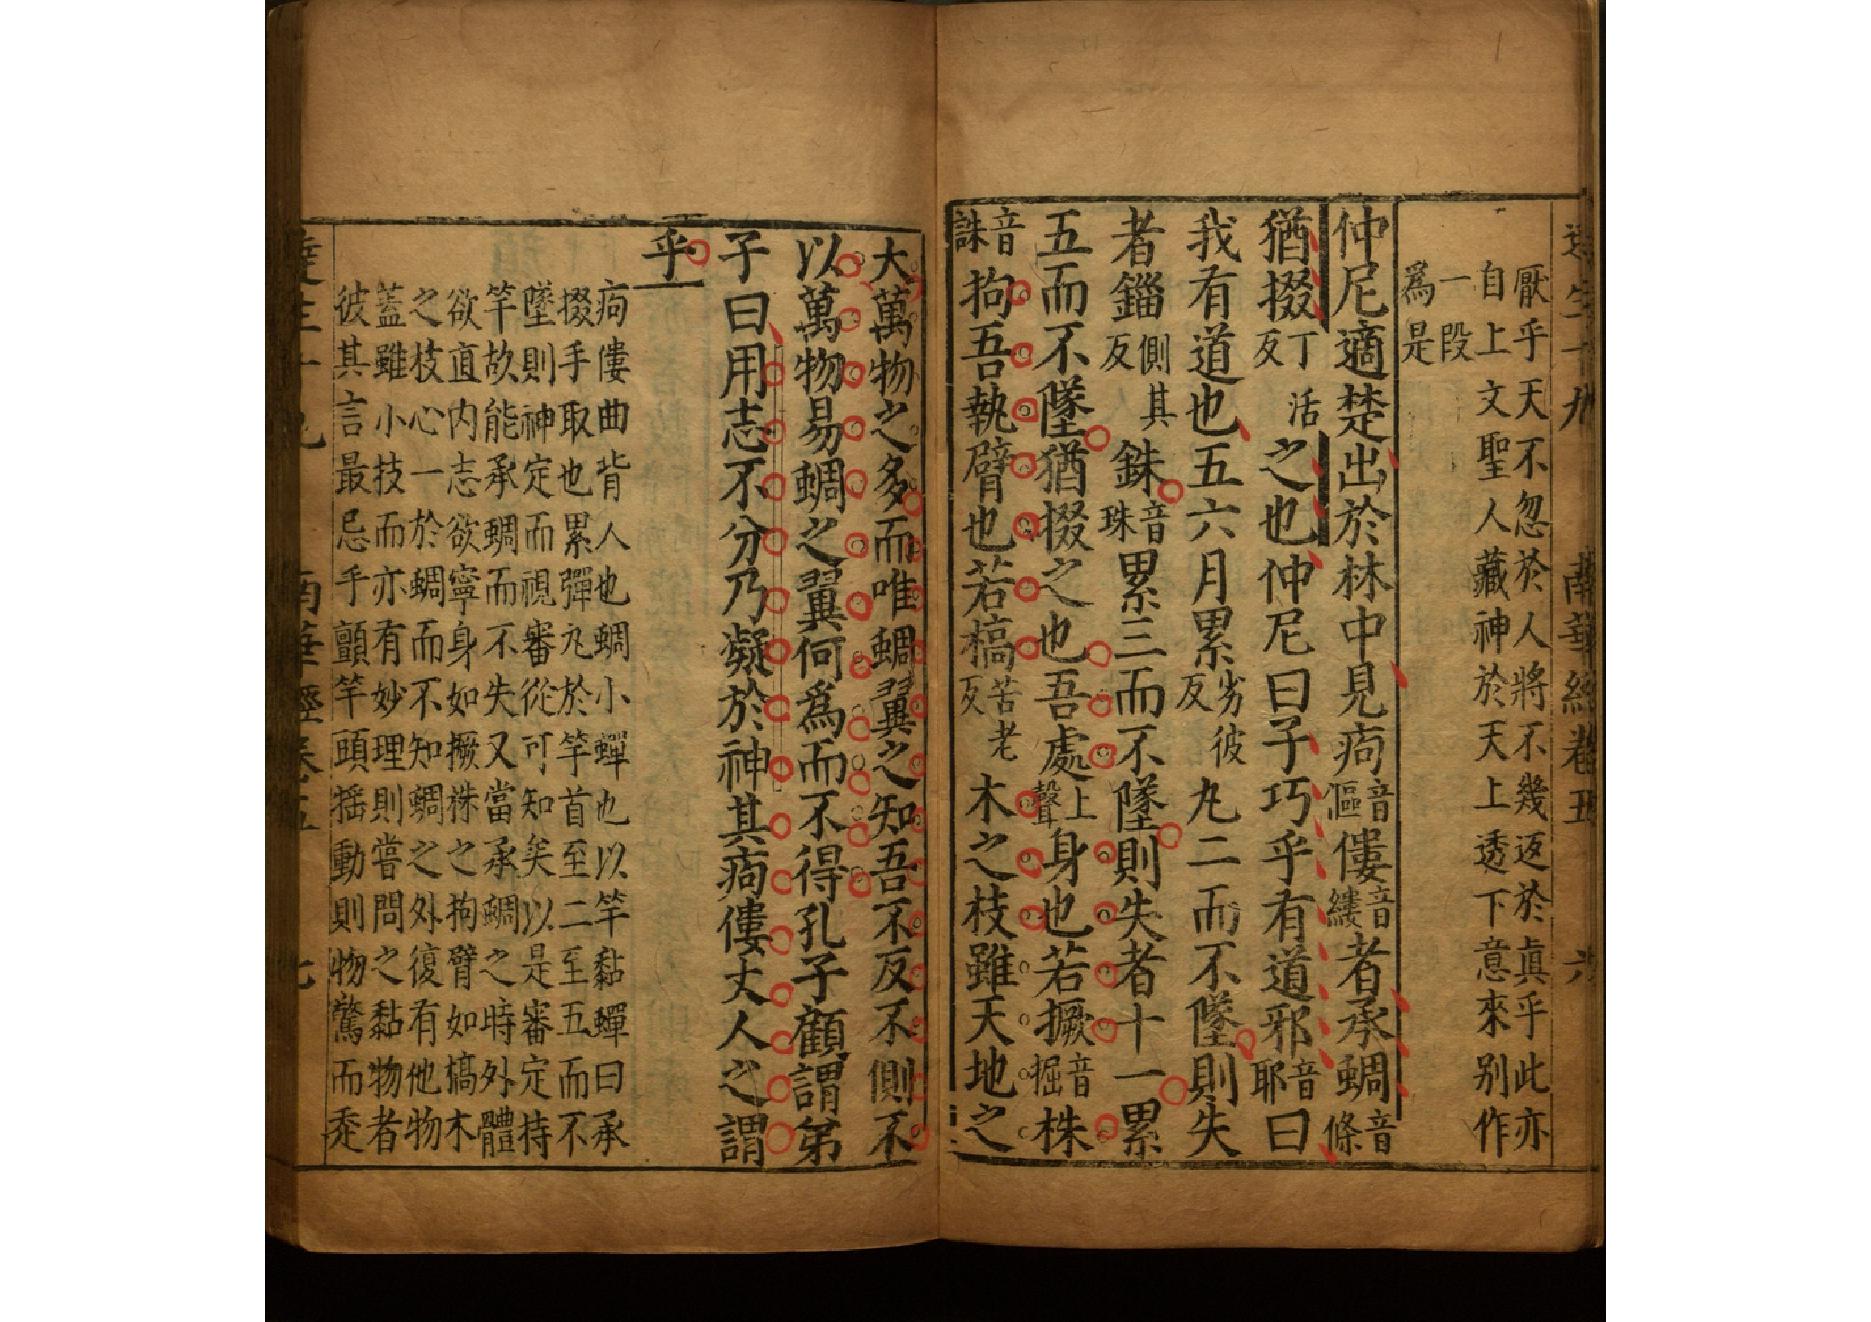 厭乎天不忽於人將不幾返於眞乎此亦
自上文聖人藏神於天上透下意來别作
一段
爲是
仲尼適楚出於林中見痀音傴僂音縷者承蜩音條
猶掇丁活反之也仲尼曰子巧乎有道邪音耶曰
我有道也五六月累劣彼反丸二而不墜則失
者錙側其反銖音珠累三而不墜則失者十一累
五而不墜猶掇之也吾處上聲身也若撅音掘株
音誅拘吾執臂也若槁苦老反木之枝雖天地之
大萬物之多而唯蜩翼之知吾不反不側不
以萬物易蜩之翼何爲而不得孔子顧謂弟
子曰用志不分乃凝於神其痀僂丈人之謂
乎
痀僂曲背人也蜩小蟬也以竿黏蟬曰承
掇手取也累彈丸於竿首至二至五而不
墜則神定而視審從可知矣以是審定持
竿故能承蜩而不失又當承蜩之時外體
欲直内志欲寧身如撅株之拘臂如槁木
之枝心一於蜩而不知蜩之外復有他物
蓋雖小技而亦有妙理則嘗問之黏物者
彼其言最忌手顫竿頭揺動則物驚而走